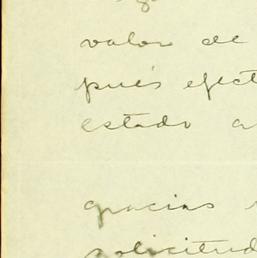 valor de
pués efect
estado a
gracias
solicitud